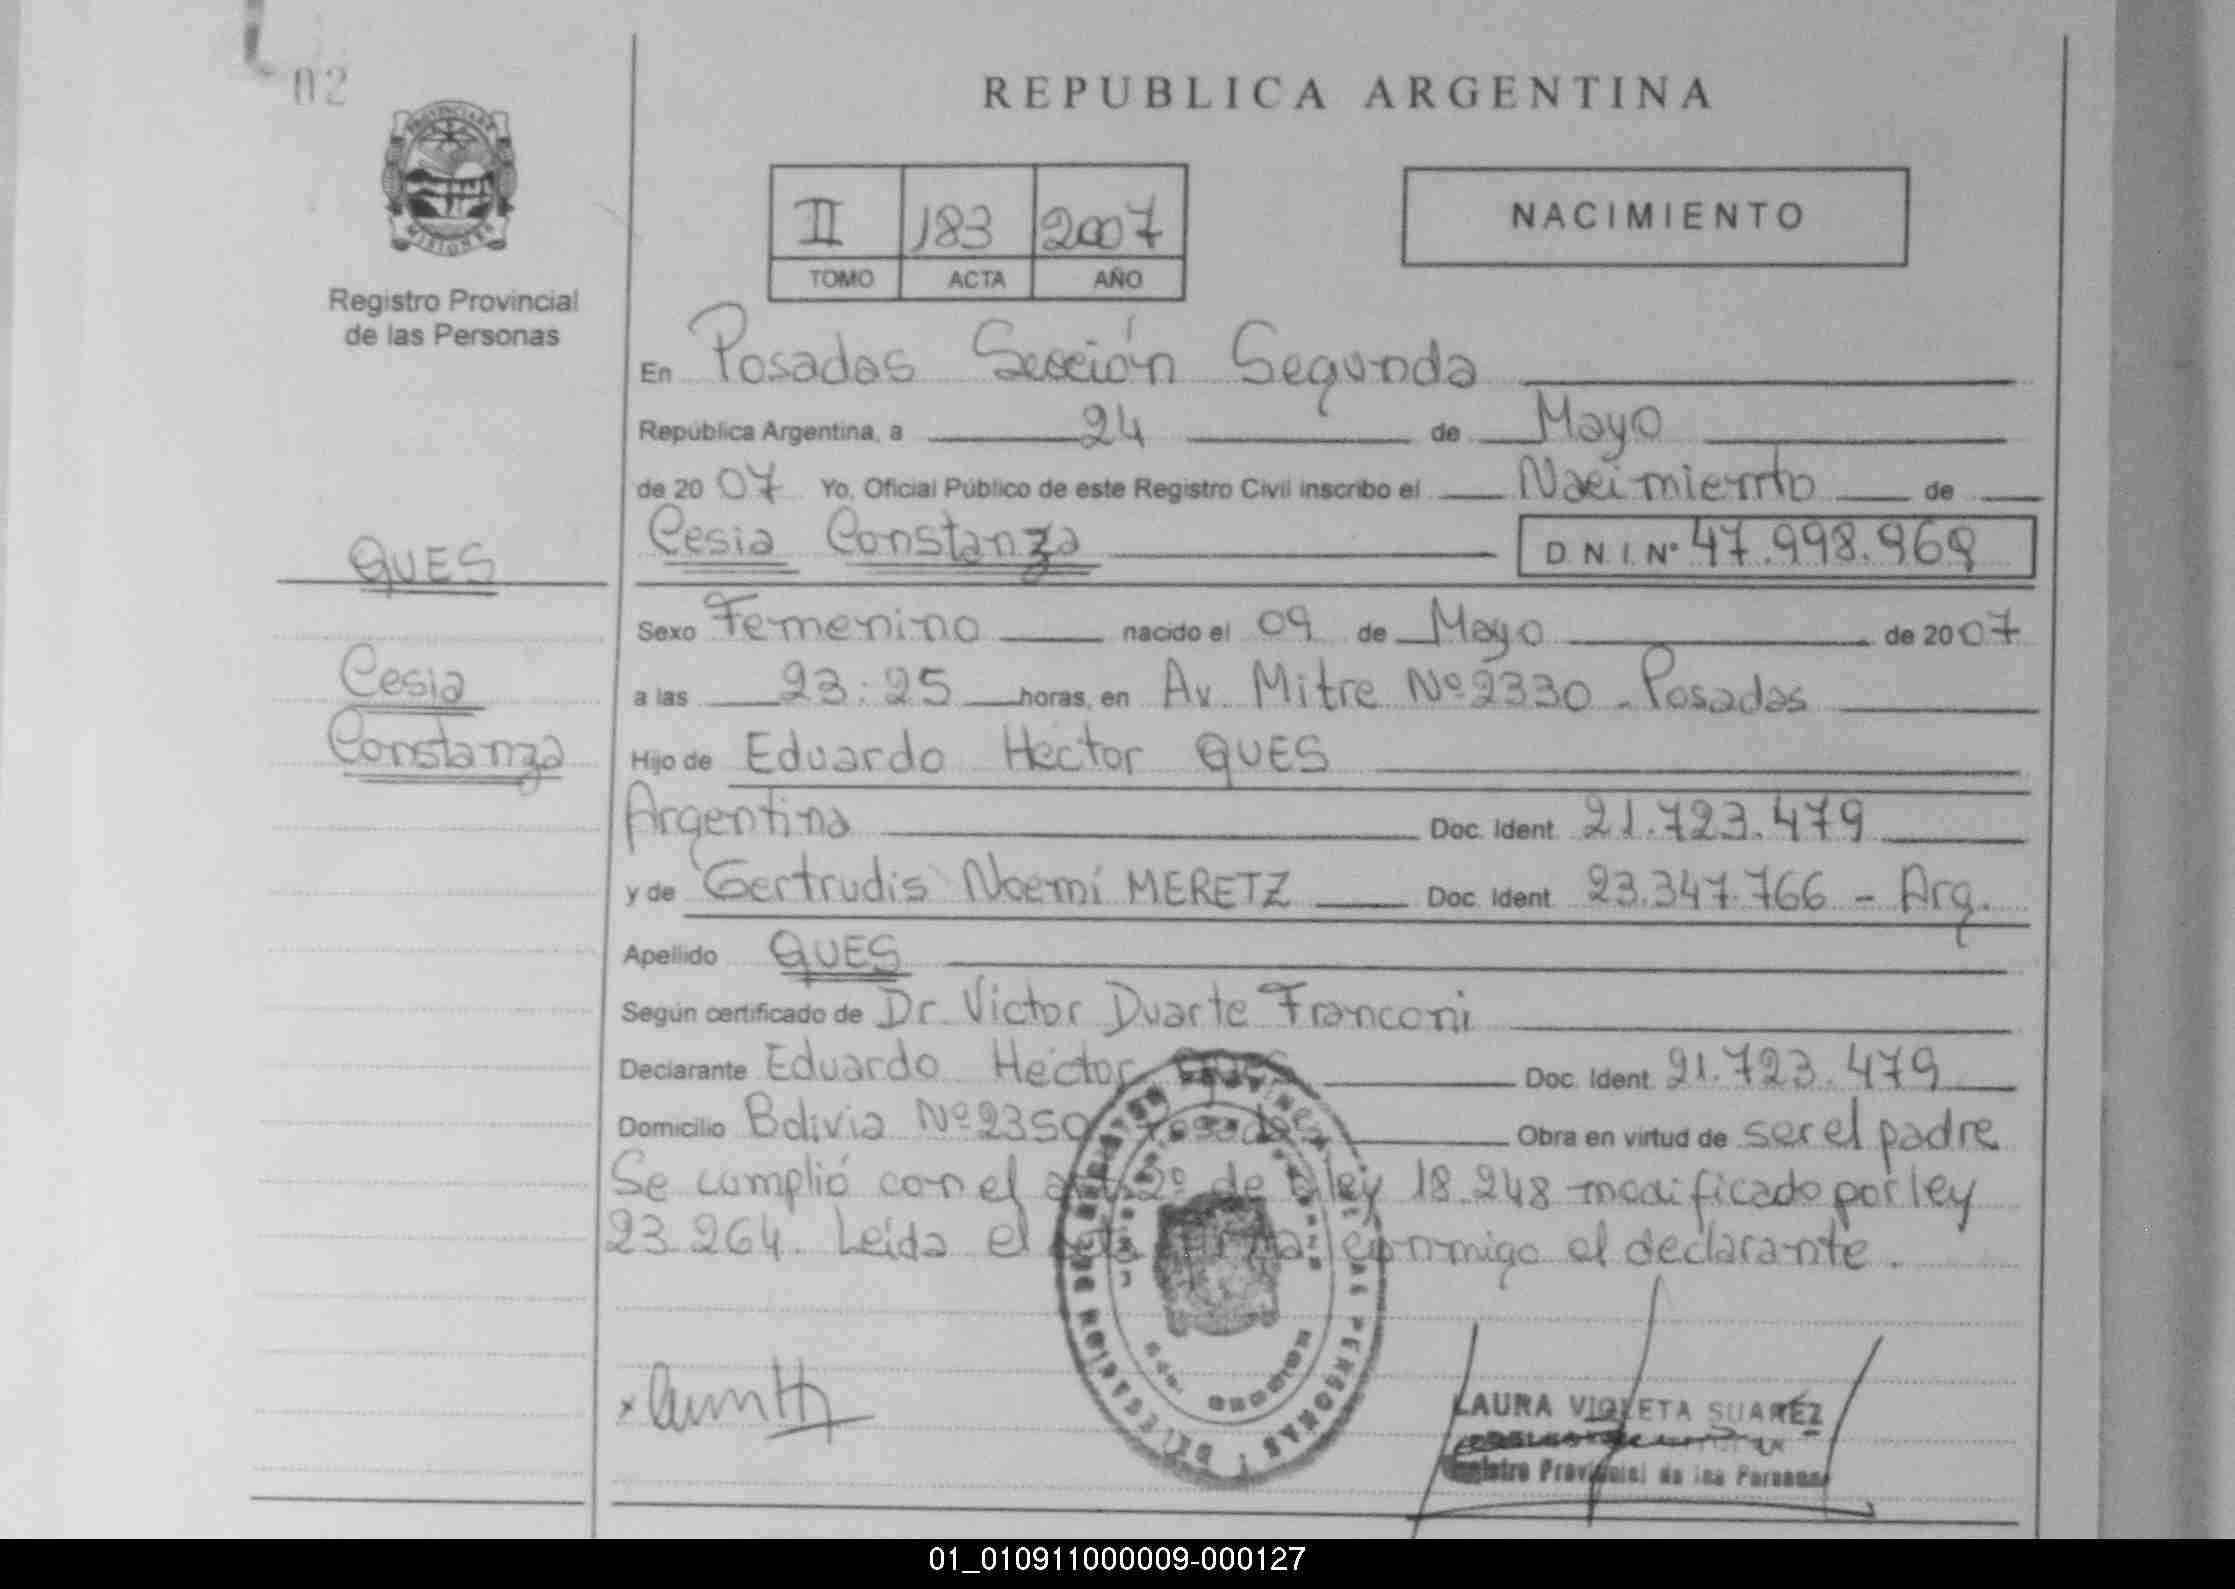 02
REPUBLICA ARGENTINA
PROVINCIA DE
MISIONES
Registro Provincial
de las Personas
II 183 2007
TOMO ACTA AÑO
NACIMIENTO
En Posadas Sección Segunda
República Argentina, a 24 de Mayo
de 2007 Yo, Oficial Público de este Registro Civil inscribo el Nacimiento de
QUES
Cesia Constanza D.N.I. Nº 47.998.969
Sexo Femenino nacido el 09 de Mayo de 2007
Cesia
Constanza
a las 23:25 horas, en Av. Mitre Nº 2330 - Posadas
Hijo de Eduardo Héctor QUES
Argentina Doc. Ident. 21.723.479
y de Gertrudis Noemí MERETZ Doc. Ident. 23.347.766 - Arg.
Apellido QUES
Según certificado de Dr. Victor Duarte Franconi
Declarante Eduardo Héctor QUES Doc. Ident. 21.723.479
Domicilio Bolivia Nº 2350 Posadas Obra en virtud de ser el padre
Se cumplió con el art. 2º de ley 18.248 modificado por ley
23.264. Leída el acta firma conmigo el declarante.
x
LAURA VIOLETA SUAREZ
Registro Provincial de las Personas
01_010911000009-000127